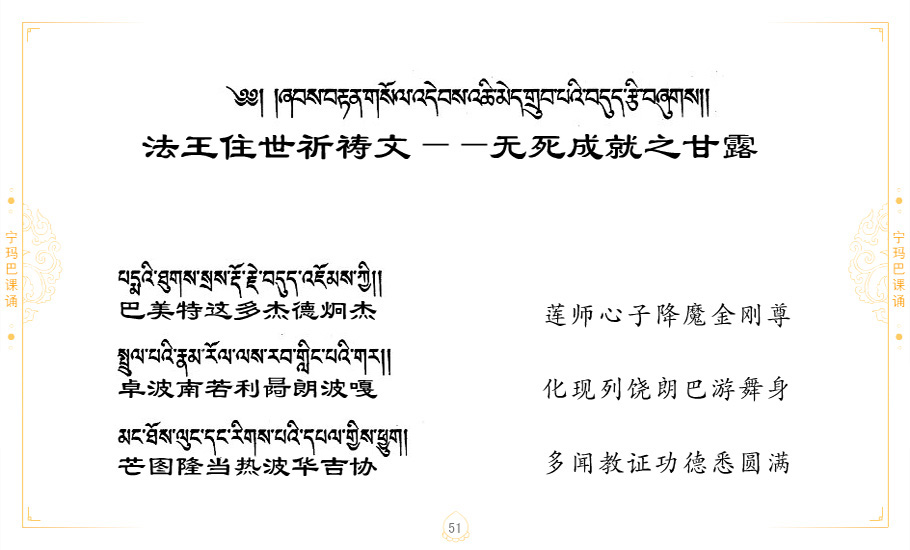 ༄༅། །ཞབས་བརྟན་གསོལ་འདེབས་འཆི་མེད་གྲུབ་པའི་བདུད་རྩི་བཞུགས།།
法王住世祈祷文－－无死成就之甘露
པདྨའི་ཐུགས་སྲས་རྡོ་རྗེ་བདུད་འཇོམས་ཀྱི།།
巴美特这多杰德炯杰
莲师心子降魔金刚尊
སྤྲུལ་པའི་རྣམ་རོལ་ལས་རབ་གླིང་པའི་གར།།
卓波南若利冔朗波嘎
化现列饶朗巴游舞身
མང་ཐོས་ལུང་དང་རིགས་པའི་དཔལ་གྱིས་ཕྱུག།
芒图隆当热波华吉协
多闻教证功德悉圆满
宁玛巴课诵
宁玛巴课诵
51